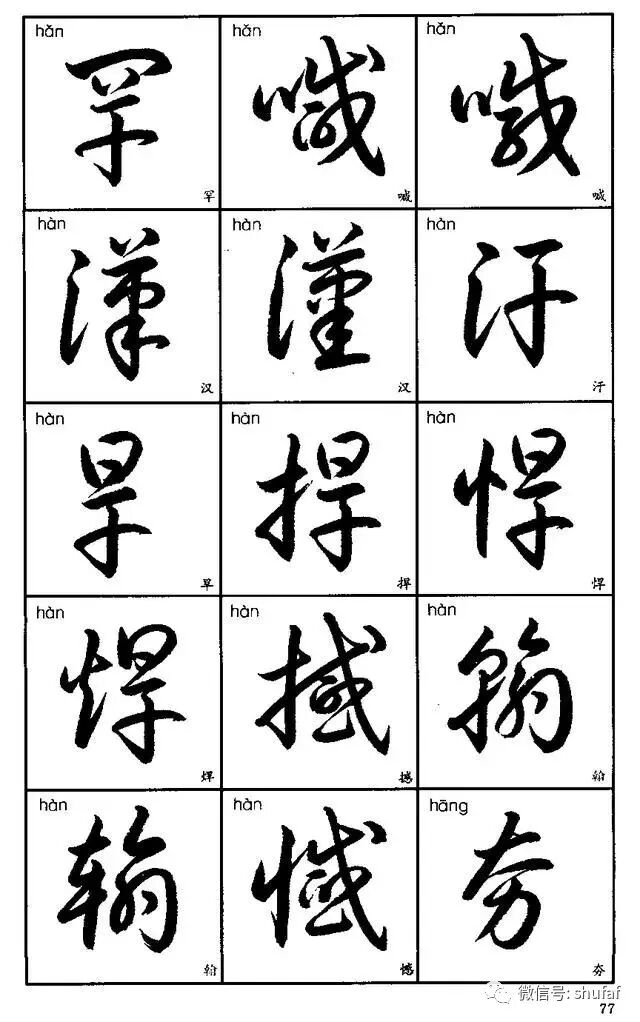 hǎn hǎn hǎn
罕 喊 喊
罕 喊 喊
hàn hàn hàn
漢 漢 汗
汉 汉 汗
hàn hàn hàn
旱 捍 悍
旱 捍 悍
hàn hàn hàn
焊 撼 翰
焊 撼 翰
hàn hàn hāng
翰 憾 夯
翰 憾 夯
微信号: shufaf
77